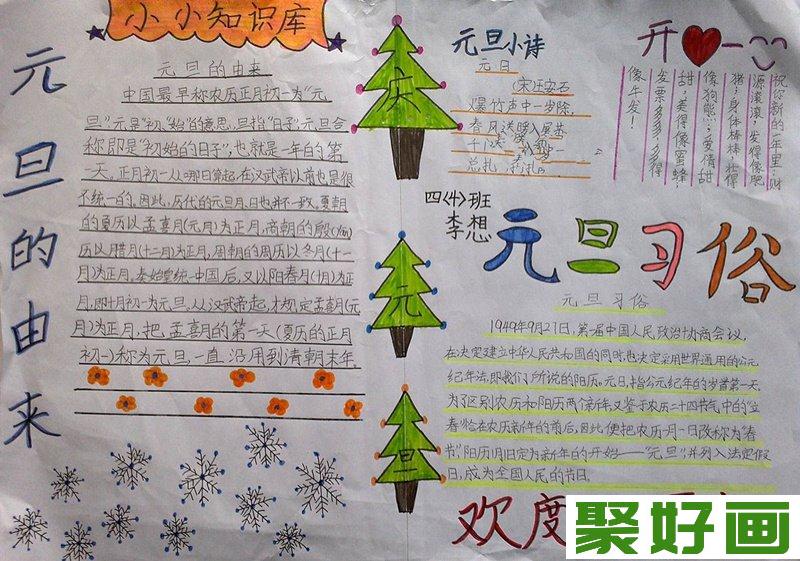 小小知识库
元旦的由来
元旦的由来
中国最早称农历正月初一为"元
旦","元"是"初、始"的意思,旦指"日子",元旦合
称即是"初始的日子",也就是一年的第
一天。正月初一从哪日算起,在汉武帝以前也是很
不统一的。因此,历代的元旦月、日也并不一致。夏朝
的夏历以孟喜月(元月)为正月,商朝的殷
历以腊月(十二月)为正月,周朝的周历以冬月(十一
月)为正月。秦始皇统一中国后,又以阳春月(十月)为正
月,即十月初一为元旦。从汉武帝起,才规定孟喜月(元
月)为正月,把孟喜月的第一天(夏历的正月
初一)称为元旦,一直沿用到清朝末年。
庆
元
旦
元旦小诗
元日
(宋)王安石
爆竹声中一岁除,
春风送暖入屠苏
千门
四(4)班
李想
开一
祝你新的一年里:财
源滚滚,发得像肥
猪;身体棒棒,壮得
像狗熊;爱情甜
甜,美得像蜜蜂
发票多多,多得
像牛发!
元旦习俗
元旦习俗
1949年9月27日,第一届中国人民政治协商会议,
在决定建立中华人民共和国的同时,也决定采用世界通用的公元
纪年法,即我们所说的阳历。元日,指公元纪年的岁首第一天。
为了区别农历和阳历两个新年,又鉴于农历二十四节气中的"立
春"恰在农历新年的前后,因此便把农历月一日改称为"春
节",阳历1月1日定为新年的开始——"元旦",并列入法定假
日,成为全国人民的节日。
欢度
聚好画